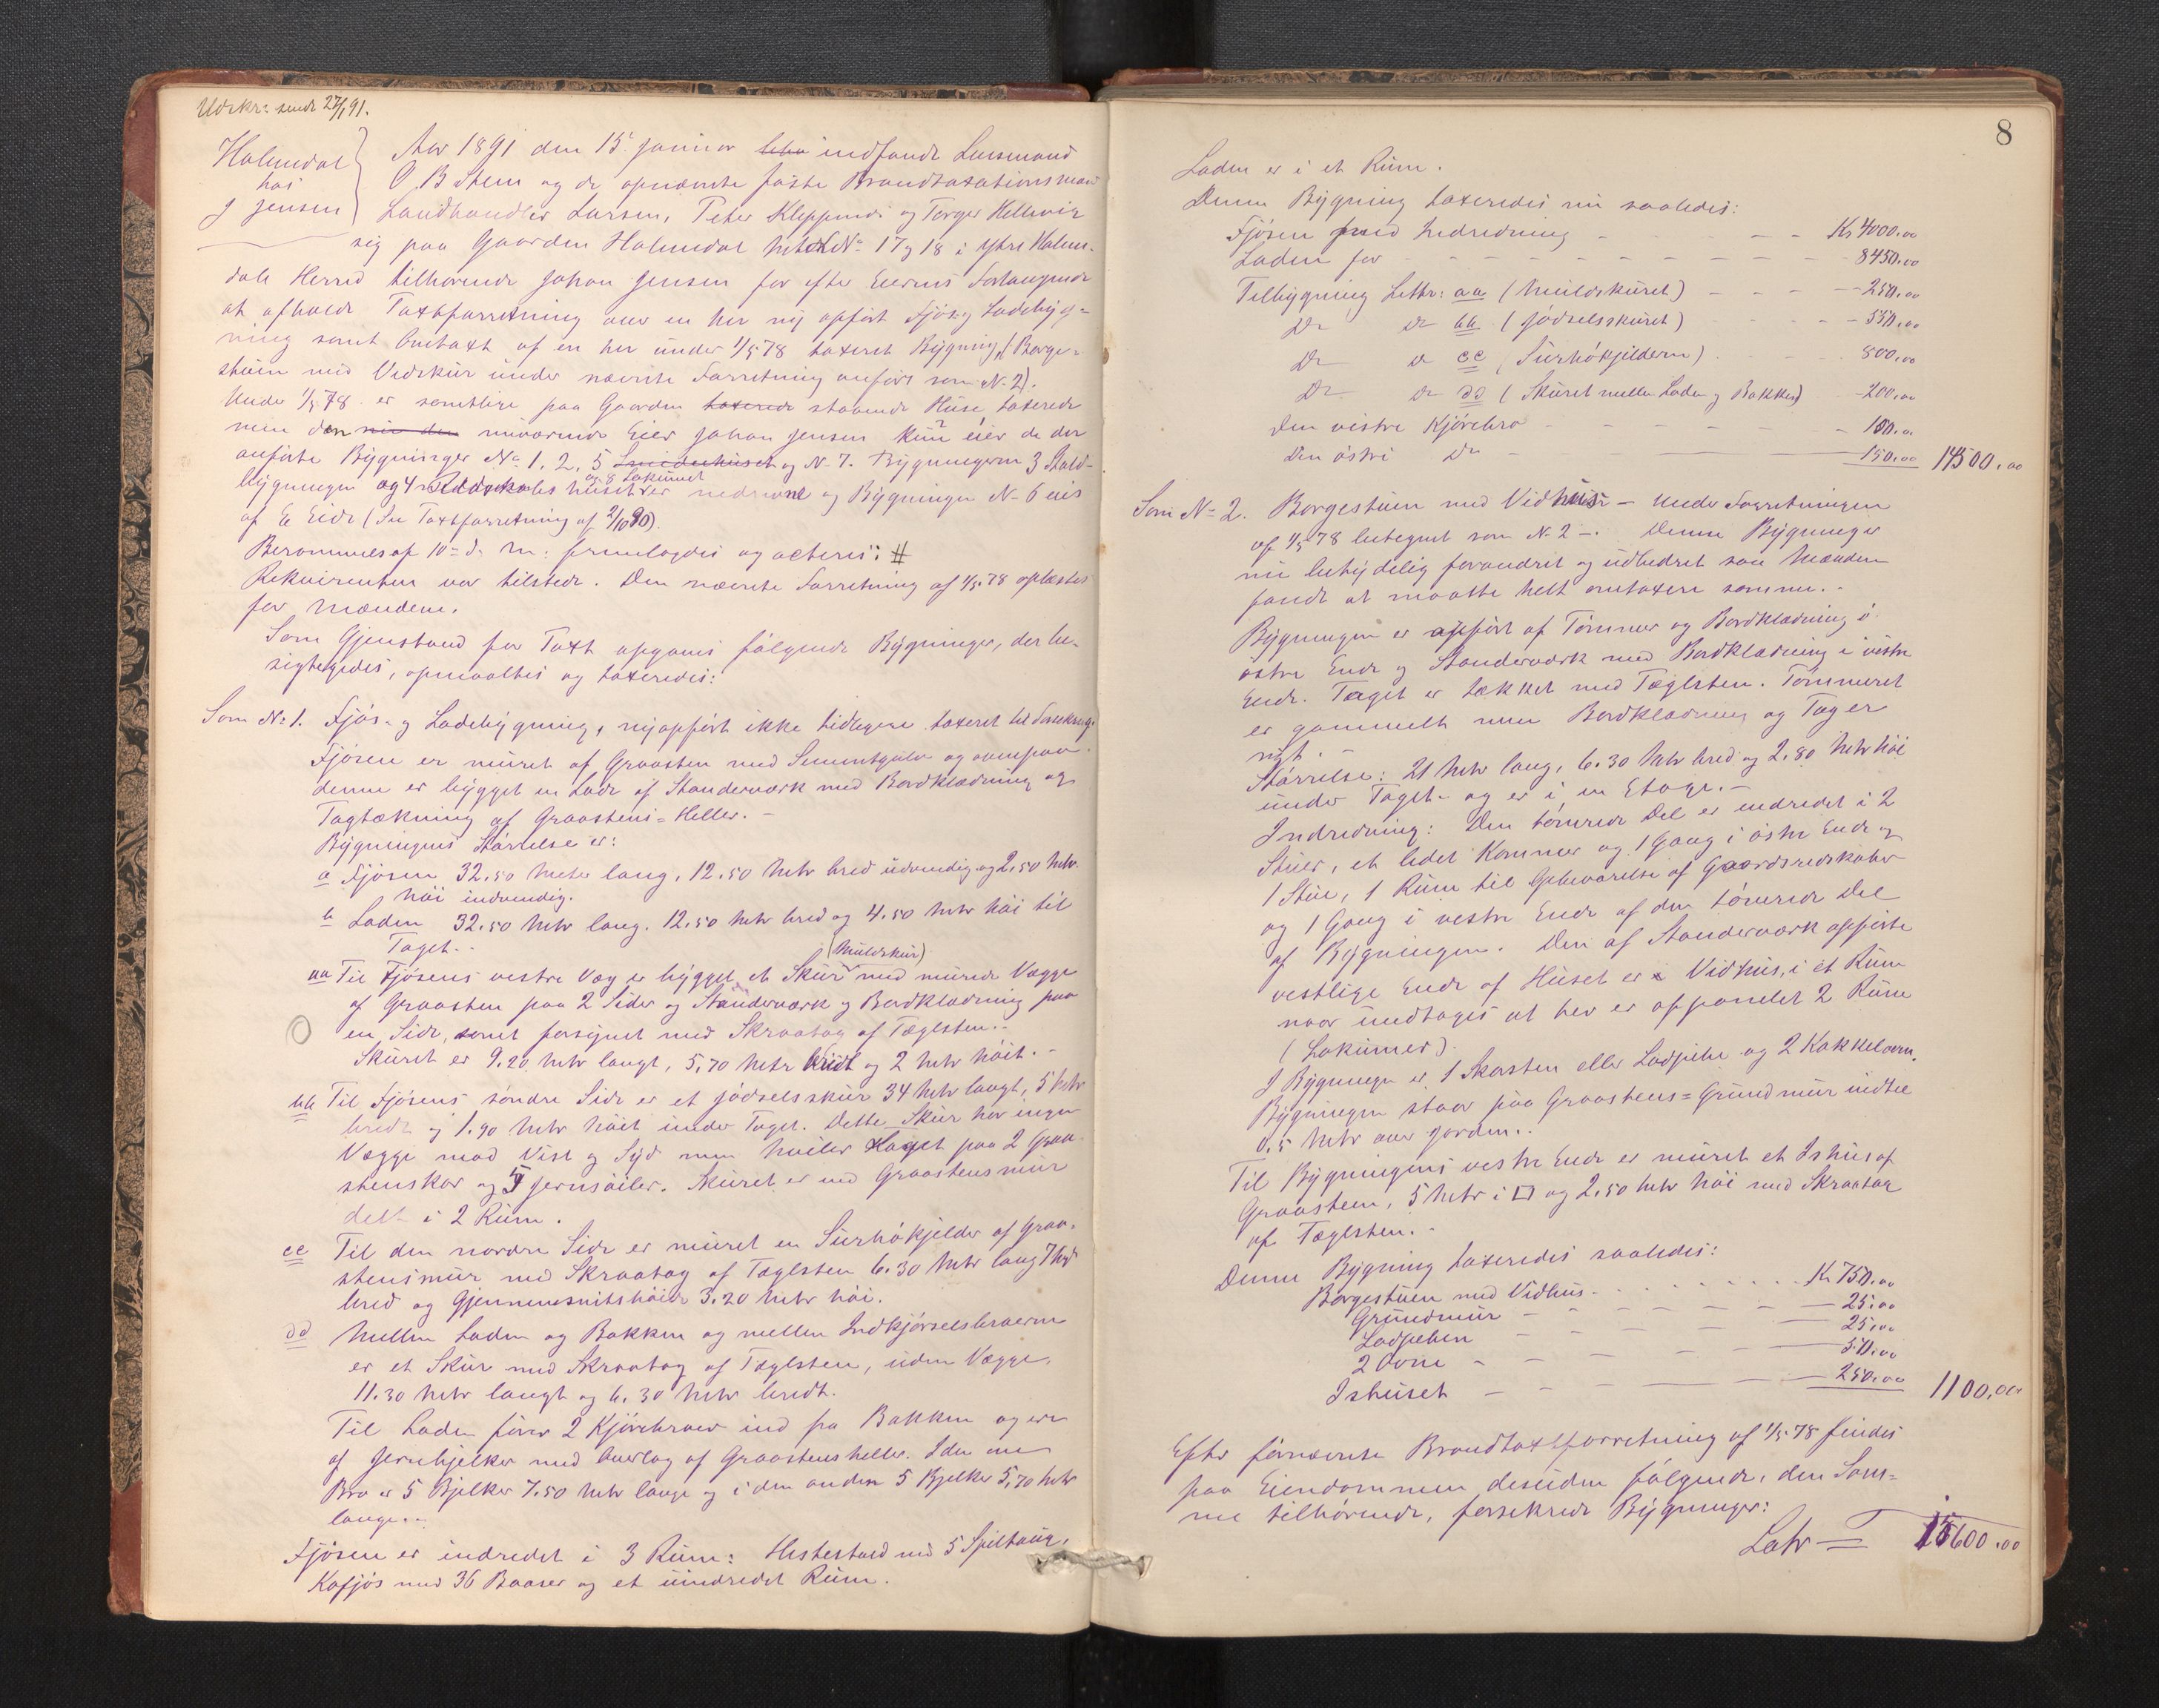 Udskr: sendt 27/1 91.
Holmedal
hos
J Jensen
Aar 1891 den 15. januar blev indfandt Lensmand
O B Steen og de opnævnte faste Brandtaxationsmænd
Landhandler Larsen, Peter Kleppenes og Torger Hellevig
sig paa Gaarden Holmedal Matr. No 17 og 18 i Ytre Holme-
dals Herred tilhørende Johan Jensen for efter Eierens Forlangende
at afholde Taxtforretning over en her ny opført Fjøs og Ladebyg-
ning samt Omtaxt af en her under 1/5 78 taxeret Bygning, (Borge-
stuen med Vedskur under nævnte Forretning anført som No 2).
Under 1/5 78 er samtlige paa Gaarden taxerede staaende Huse taxerede
men den nu den nuværende Eier Johan Jensen kun eier de der
anførte Bygninger No 1, 2, 5 Smidehuset og No 7. Bygningerne 3 Stald-
bygningen og 4 Redskabshuset og 8 Lokummet er nedrevne og Bygningen No 6 eies
af E Eide (Se Taxtforretning af 2/10 90).
Berammelse af 10de d. M: fremlagdes og acteres: #
Rekvirenten var tilstede. Den nævnte Forretning af 1/5 78 oplæstes
for Mændene.
Som Gjenstand for Taxt opgaves følgende Bygninger, der be-
sigtigedes, opmaaltes og taxeredes:
Som No 1. Fjøs- og Ladebygning, nyopført ikke tidligere taxeret til Forsikring.
Fjøsen er muret af Graasten med Sementgulv og ovenpaa
denne er bygget en Lade af Standerværk med Bordklædning og
Tagtækning af Graastens-Heller. -
Bygningens Størrelse er:
a Fjøsen 32.50 Meter lang, 12.50 Metr bred udvendig og 2.50 Metr
høi indvendig.
b Laden 32.50 Metr lang. 12.50 Metr bred og 4.50 Metr høi til
Taget. -
(Muldskur)
aa Til Fjøsens vestre Væg er bygget et Skur med murede Vægge
af Graasten paa 2 Sider og Standerværk og Bordklædning paa
en Side, samt forsynet med Skraatag af Tæglsten. -
Skuret er 9.20 Metr langt, 5,70 Metr bredt og 2 Metr høit. -
bb Til Fjøsens søndre Side er et gjødselsskur 34 Metr langt, 5 Metr
bredt og 1.90 Metr høit under Taget. Dette Skur har ingen
Vægge mod Vest og Syd men hviler Taget paa 2 Graa-
stenskar og 5 jernsøiler. Skuret er med Graastensmur
delt i 2 Rum.
cc Til den nordre Side er muret en Surhøkjelder af Graa-
stensmur med Skraatag af Tæglsten 6.30 Metr lang 7 Metr
bred og Gjennemsnitshøide 3.20 Metr høi.
dd Mellem Laden og Bakken og mellem Indkjørselsbroerne
er et Skur med Skraatag af Tæglsten, uden Vægge.
11.30 Metr langt og 6.30 Metr bredt.
Til Laden fører 2 Kjørebroer ind fra Bakken og ere
af Jernbjelker med Overlag af Graastensheller. I den ene
Bro er 5 Bjelker 7.50 Metr lange og i den anden 5 Bjelker 5,70 Metr
lange. -
Fjøsen er indredet i 3 Rum: Hestestald med 5 Spiltaug,
Kofjøs med 36 Baaser og et uindredet Rum.
8
Laden er i et Rum.
Denne Bygning taxeredes nu saaledes:
Fjøsen med Indredning - - - - Kr 4000.00
Laden for - - - - - - - - 8450.00
Tilbygning Littr: aa (Muldskuret) - - - 250.00
Do do bb (gjødselsskuret) - - - 550.00
Do do cc (Surhøkjelderen) - - 800.00
Do do dd (Skuret mellem Laden og Bakken) - 200.00
Den vestre Kjørebro - - - - - - 100.00
Den østre Do - 150.00 14500.00
Som No 2. Borgestuen med Vedhus - under Forretningen
af 1/5 78 betegnet som No 2 -. Denne Bygning er
nu betydelig forandret og udbedret saa Mændene
fandt at maatte helt omtaxere samme. -
Bygningen er opført af Tømmer og Bordklædning i
østre Ende og Standerværk med Bordklædning i vestre
Ende. Taget er tækket med Tæglsten. Tømmeret
er gammelt men Bordklædning og Tag er
nyt. -
Størrelse: 21 Metr lang, 6.30 Metr bred og 2.80 Metr høi
under Taget og er i en Etage. -
Indredning: Den tømrede Del er indredet i 2
Stuer, et lidet Kammer og 1 Gang i østre Ende og
1 Stue, 1 Rum til Opbevarelse af Gaardsredskaber
og 1 Gang i vestre Ende af den tømrede Del
af Bygningen. Den af Standerværk opførte
vestlige Ende af Huset er Vedhus, i et Rum
naar undtages at her er afpanelet 2 Rum
(Lokumer).
I Bygningen er 1 Skorsten eller Ladpibe og 2 Kakkelovne.
Bygningen staar paa Graastens-Grundmur indtil
0.5 Metr over jorden. -
Til Bygningens vestre Ende er muret et Ishus af
Graasten, 5 Metr i □ og 2.50 Metr høi med Skraatag
af Tæglsten. -
Denne Bygning taxeredes saaledes:
Borgestuen med Vedhus - - - - - Kr 750.00
Grundmur - - - - - - 25.00
Ladpiben - - - - - - 25.00
2 Ovne - - - - - - 50.00
Ishuset - - - - - - 250.00 1100.00
Efter førnævnte Brandtaxtforretning af 1/5 78 findes
paa Eiendommen desuden følgende, den Sam-
me tilhørende, forsikrede Bygninger:
Latr = 15600.00